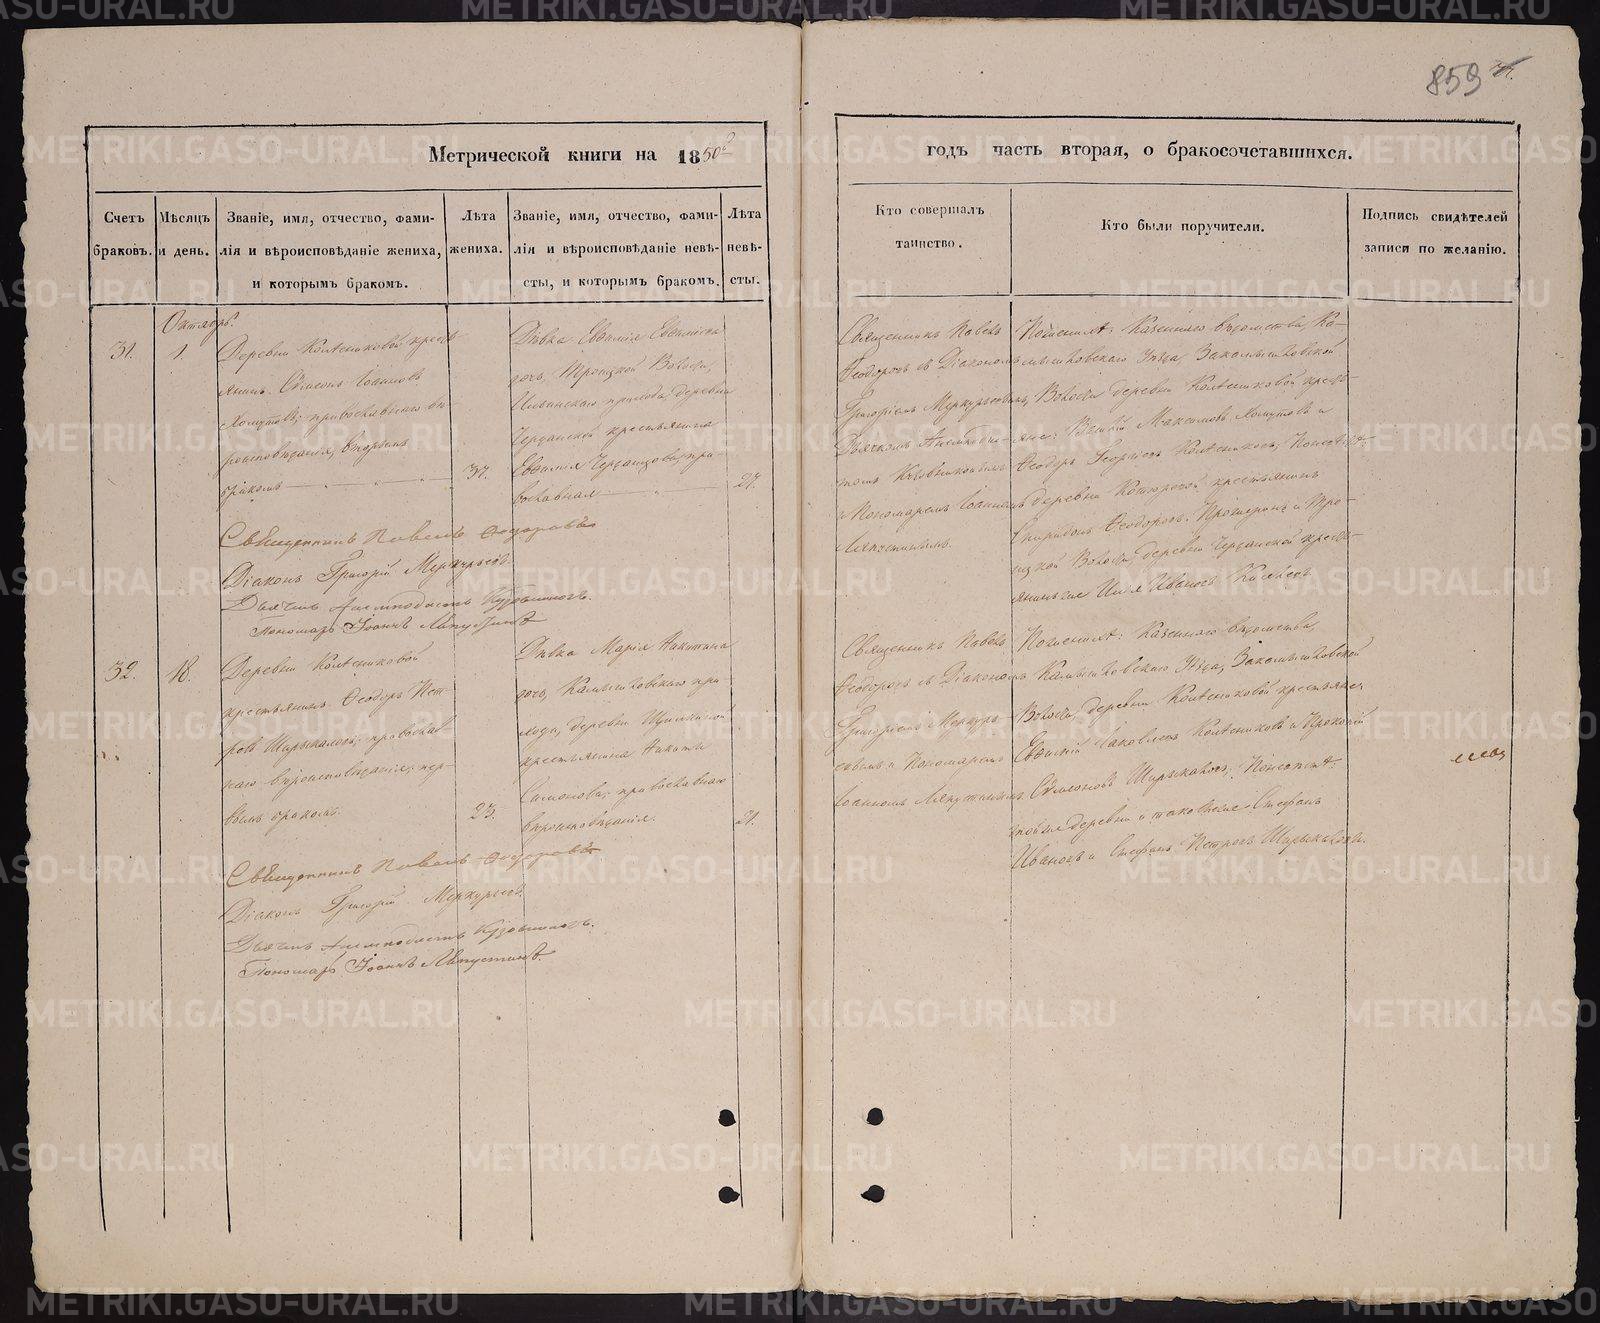 859
Метрической книги на 1850й
годъ часть вторая, о бракосочетавшихся.
Счетъ браковъ.
Мѣсяцъ и день.
Званіе, имя, отчество, фами-
лія и вѣроисповѣданіе жениха,
и которымъ бракомъ.
Лѣта жениха.
Званіе, имя, отчество, фами-
лія и вѣроисповѣданіе невѣ-
сты, и которымъ бракомъ.
Лѣта невѣ-
сты.
Кто совершалъ
таинство.
Кто были поручители.
Подпись свидѣтелей
записи по желанію.
Октябрь.
31.
1.
Деревни Колесниковой кресть-
янинъ Сѵмеонъ Іоанновъ
Хомутовъ, православнаго вѣ-
роисповѣданія, вторымъ
бракомъ
37.
Дѣвка Евѳимія Евѳиміева
дочь, Троицкой Волости,
прихода деревни
крестьянина
Евѳимія пра-
вославная
27.
Священникъ Павелъ
Ѳеодоровъ съ Діакономъ
Григоріемъ Меркурьевымъ,
Дьячкомъ Анемподис-
томъ
и Пономаремъ Іоанномъ
Ляпустинымъ.
По женихѣ: Казеннаго вѣдомства, Ка-
мышловскаго Уѣзда, Закамышловской
Волости деревни Колесниковой кресть-
яне: Максимовъ Хомутовъ и
Ѳеодоръ Георгіевъ Колесниковъ; По невѣстѣ:
деревни крестьянинъ
Спиридонъ Ѳеодоровъ и Тро-
ицкой Волости, деревни кресть-
янинъ Иванов
Священникъ Павелъ Ѳедоровъ
Діаконъ Григорій Меркурьевъ.
Дьячекъ Анемподистъ
Пономарь Іоаннъ Ляпустинъ
32.
18.
Деревни Колесниковой
крестьянинъ Ѳеодоръ Пет-
ровъ Шарыкаловъ, православ-
наго вѣроисповѣданія, пер-
вымъ бракомъ.
23.
Дѣвка Марія Никитина
дочь, Камышловскаго при-
хода, деревни
крестьянина Никиты
Симонова, православнаго
вѣроисповѣданія.
21.
Священникъ Павелъ
Ѳеодоровъ съ Діакономъ
Григоріемъ Меркурь-
евымъ и Пономаремъ
Іоанномъ Ляпустинымъ
По женихѣ: Казеннаго вѣдомства,
Камышловскаго Уѣзда, Закамышловской
Волости, деревни Колесниковой крестьяне,
Евѳимій Іаковлевъ Колесниковъ и Прокопій
Сѵмеоновъ Шарыкаловъ; По невѣстѣ:
тойже деревни и таковыеже Стефанъ
Ивановъ и Стефанъ Петровъ Шарыкаловы.
Священникъ Павелъ Ѳедоровъ
Діаконъ Григорій Меркурьевъ
Дьячекъ Анемподистъ
Пономарь Іоаннъ Ляпустинъ
METRIKI.GASO-URAL.RU